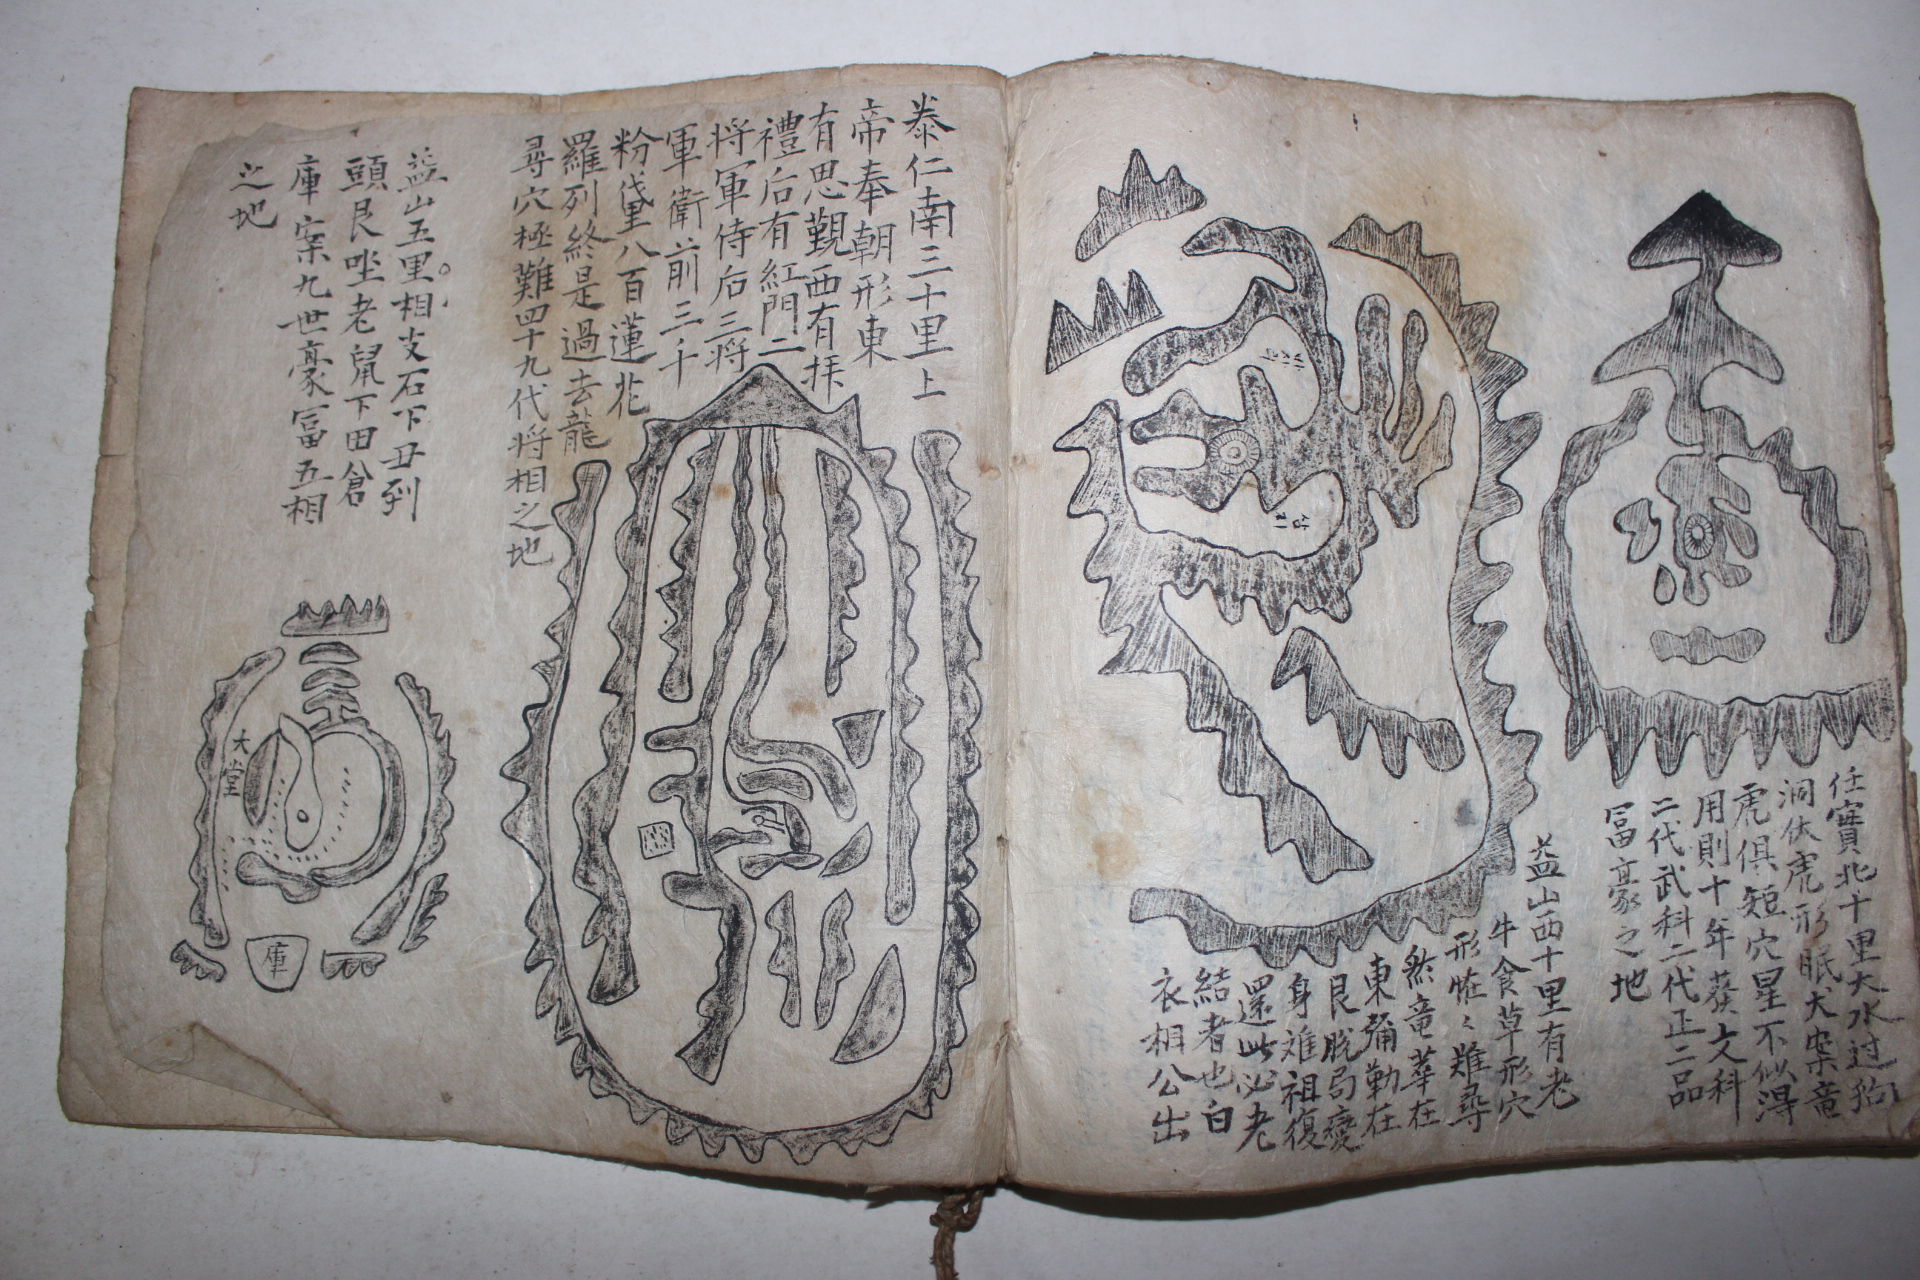 任實北十里大水过狗
洞伏虎形眠犬案竜
虎俱短穴星不似淂
用則十年葵文科
二代武科二代正二品
冨豪之地
益山西十里有老
牛食草形穴
形恠々難尋
然竜葬在
東弥勒在
艮脱局變
身难祖復
還此必老
結者也白
衣相公出
泰仁南三十里上
帝奉朝形東
有思覲西有拝
禮后有紅門二
将軍侍后三将
軍衛前三千
粉黛八百蓮花
羅列終是過去龍
尋穴極難四十九代将相之地
益山五里相支石下丑列
頭艮坐老鼠下田倉
庫案九世豪富五相
之地
大堂
庫